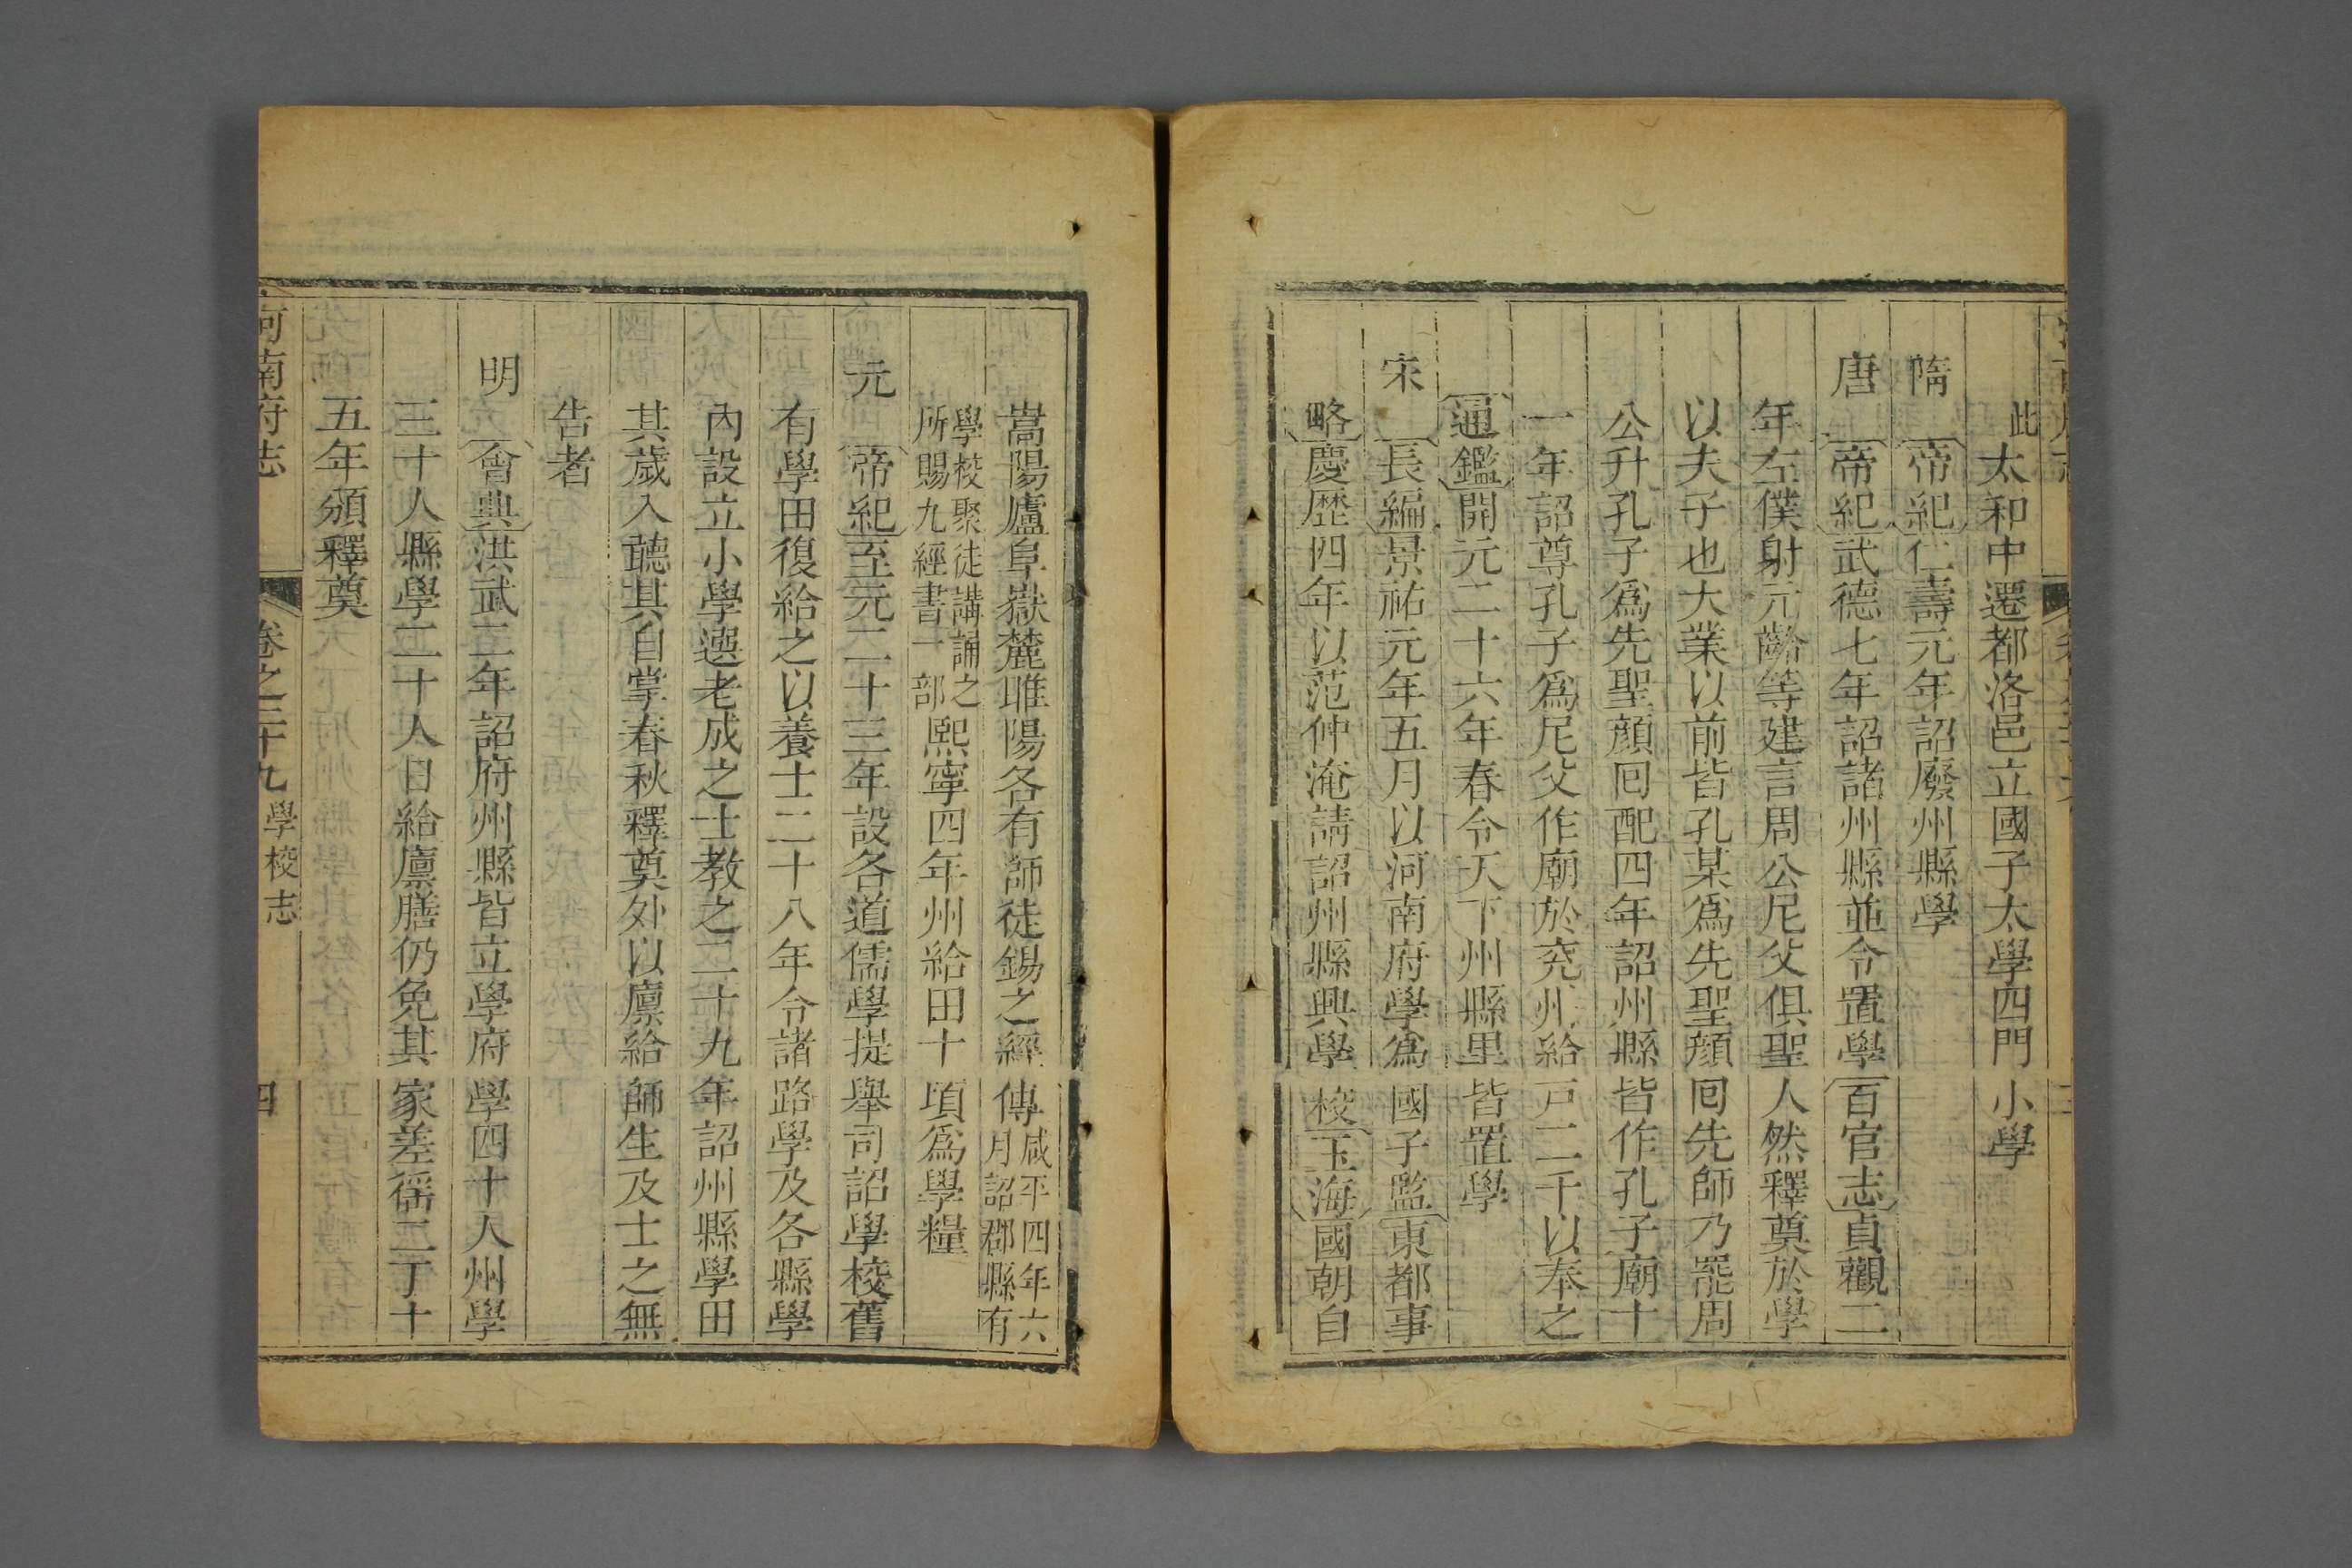 此太和中遷都洛邑立國子太學四門小學
隋
帝紀仁壽元年詔廢州縣學
唐
帝紀武德七年詔諸州縣並令置學百官志貞觀二
年左僕射元齡等建言周公尼父俱聖人然釋奠於學
以夫子也大業以前皆孔某爲先聖顔回先師乃罷周
公升孔子爲先聖顔回配四年詔州縣皆作孔子廟十
一年詔尊孔子爲尼父作廟於兖州給戸二千以奉之
通鑑開元二十六年春令天下州縣里皆置學
宋
長編景祐元年五月以河南府學爲國子監東都事
略慶歷四年以范仲淹請詔州縣興學校玉海國朝自
嵩陽廬阜嶽麓睢陽各有師徒錫之經傳咸平四年六
月詔郡縣有
學校聚徒講誦之
所賜九經書一部熙寧四年州給田十頃爲學糧
元
帝紀至元二十三年設各道儒學提舉司詔學校舊
有學田復給之以養士二十八年令諸路學及各縣學
內設立小學選老成之士教之二十九年詔州縣學田
其歲入聽其自掌春秋釋奠外以廩給師生及士之無
告者
明
會典洪武二年詔府州縣皆立學府學四十人州學
三十人縣學二十人日給廩膳仍免其家差徭二丁十
五年頒釋奠
河南府志
卷之三十九
學校志
四